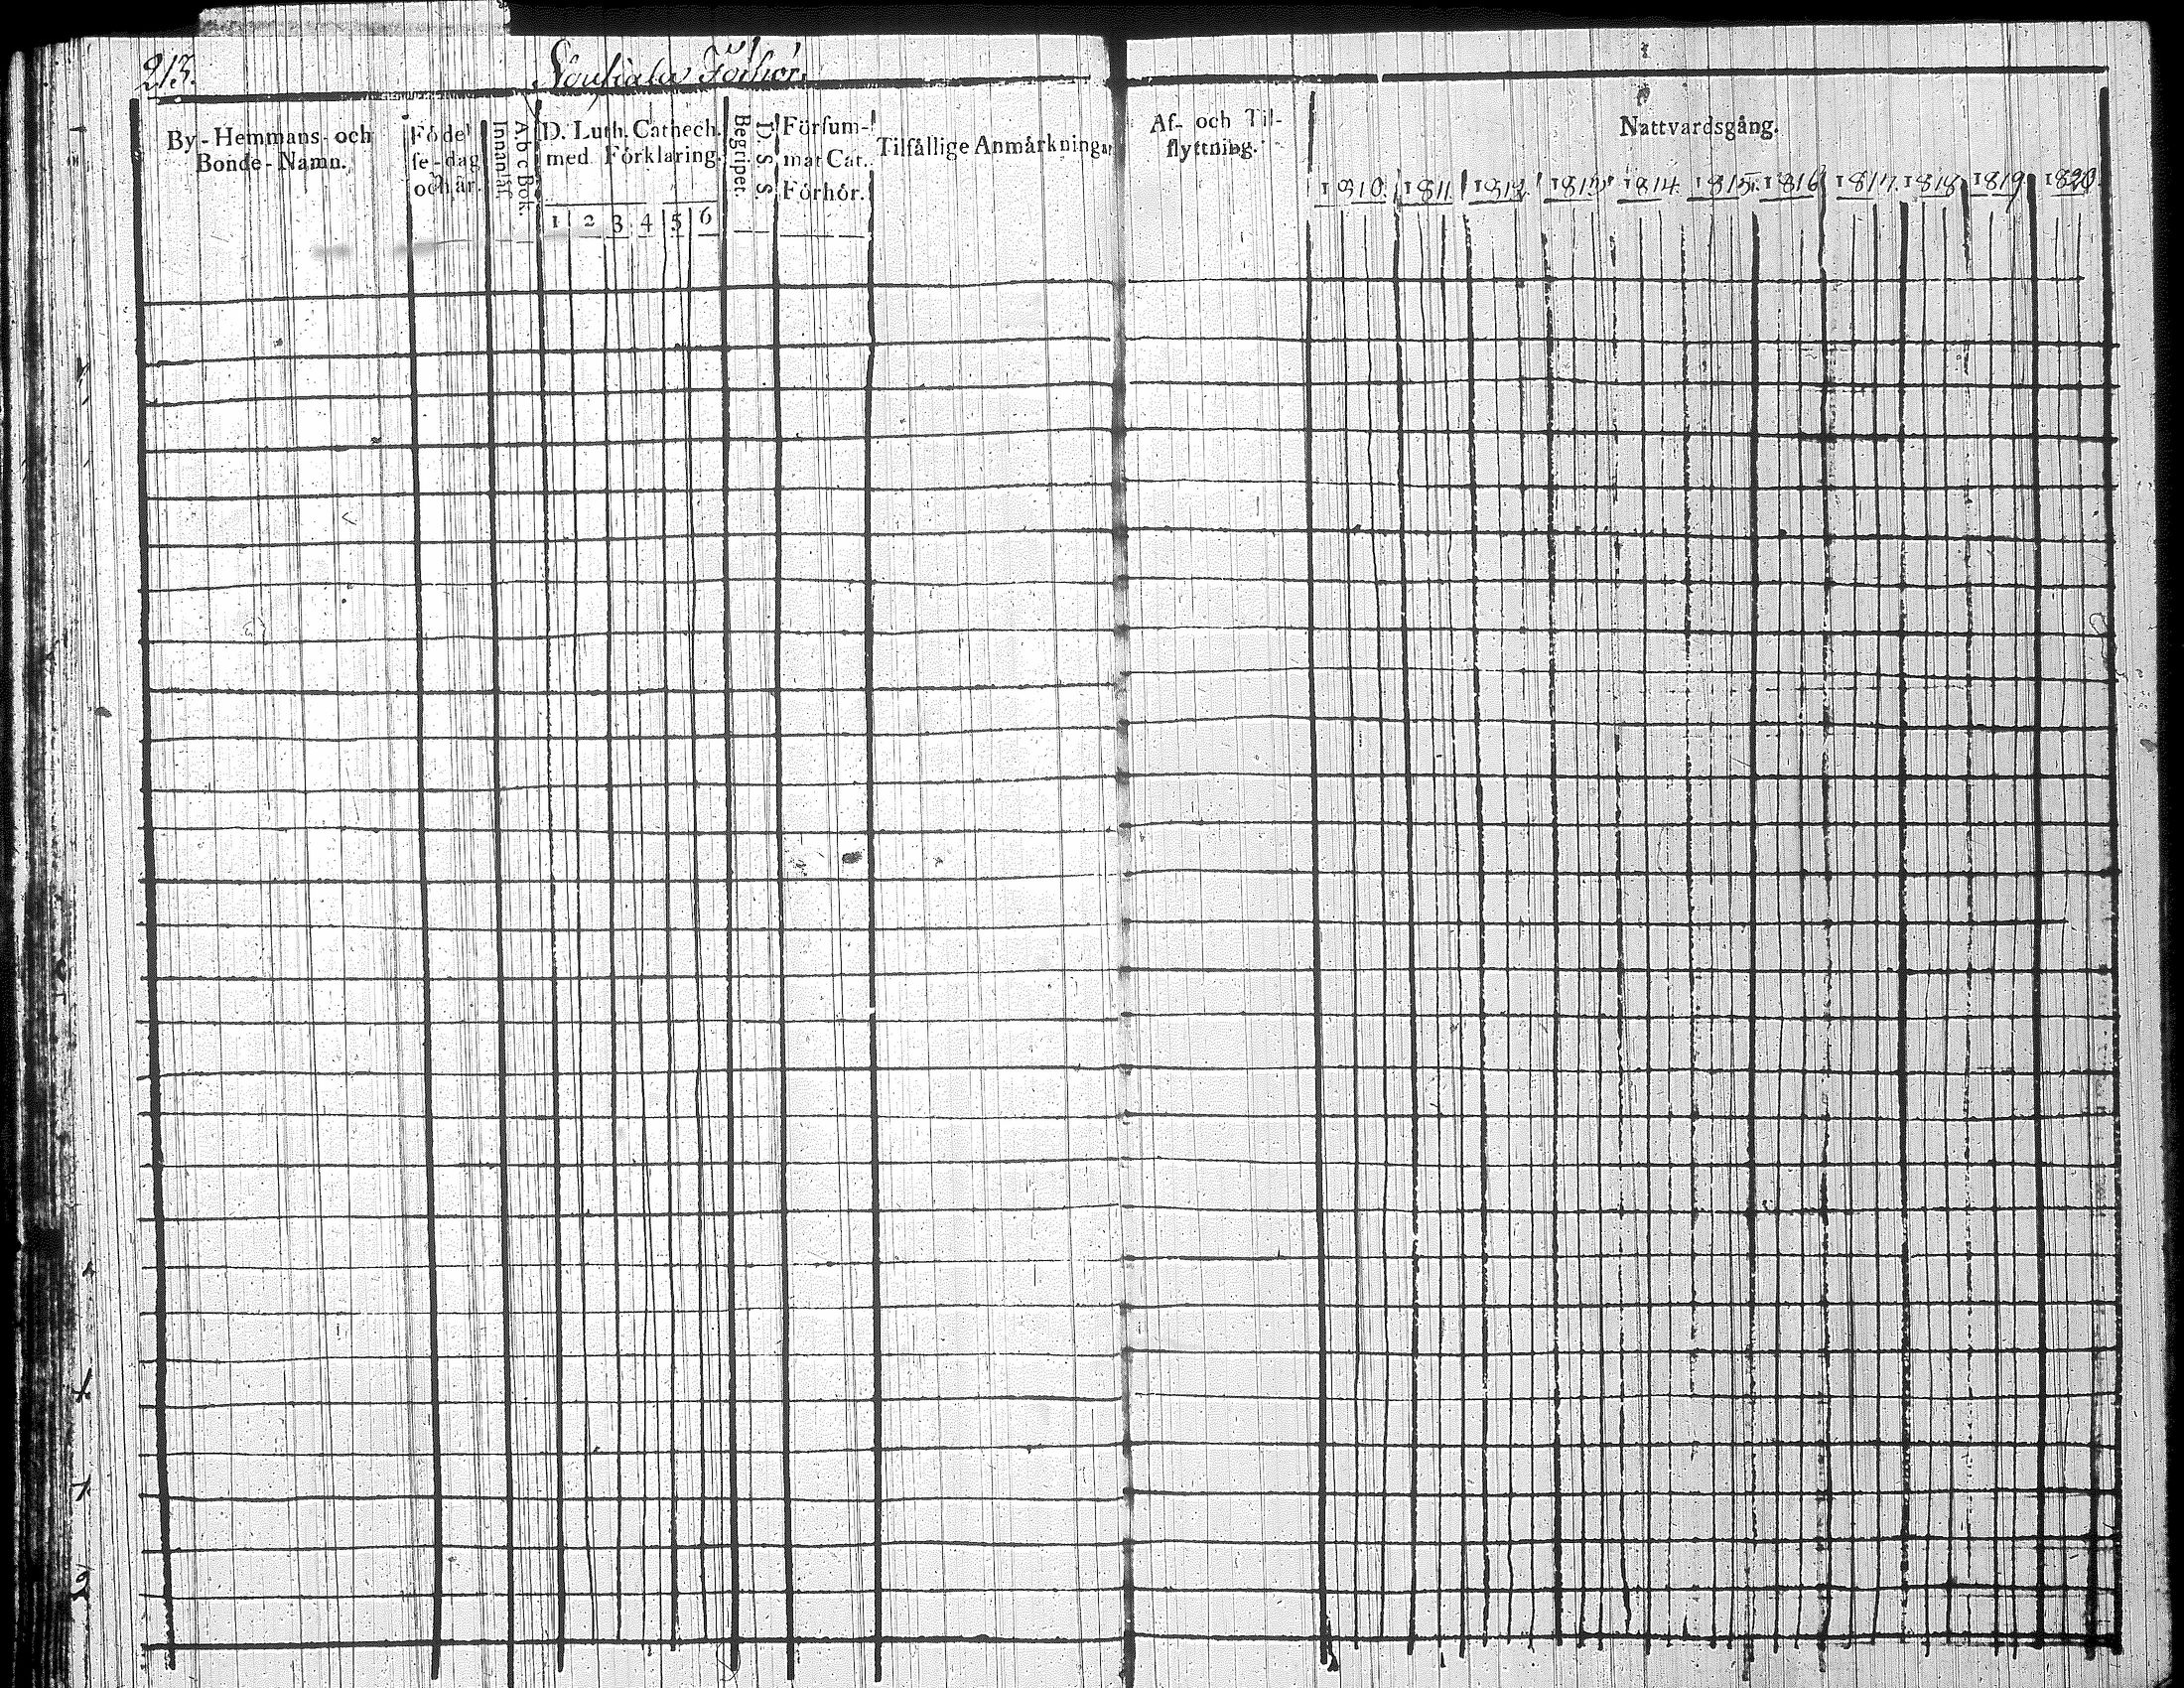 213.
Förhör
By-Hemmans- och
Bonde-Namn.
Födel
se-dag
och år.
Innanläs.
Abc Bok.
D. Luth. Cathech.
med Förklaring.
1 2 3 4 5 6
Begriper.
D. S. S.
Försum-
mat Cat.
Förhör.
Tilfällige Anmärkningar
Af- och Til-
flyttning.
Nattvardsgång.
1810. 1811. 1812. 1813. 1814. 1815. 1816. 1817. 1818. 1819. 1820.